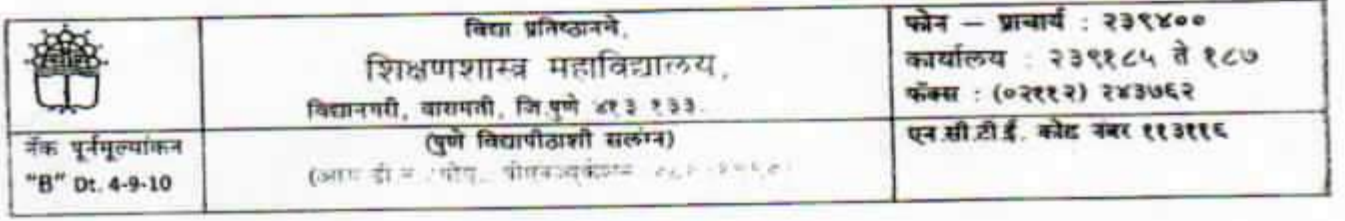 विद्या प्रतिष्ठानचे,
शिक्षणशास्त्र महाविद्यालय,
विद्यानगरी, बारामती, जि.पुणे ४१३ १३३.
(पुणे विद्यापीठाशी सलंग्न)
फोन – प्राचार्य : २३९४००
कार्यालय : २३९१८५ ते १८७
फॅक्स : (०२११२) २४३७६२
नॅक पूर्नमूल्यांकन
"B" Dt. 4-9-10
एन.सी.टी.ई. कोड नंबर ११३११६